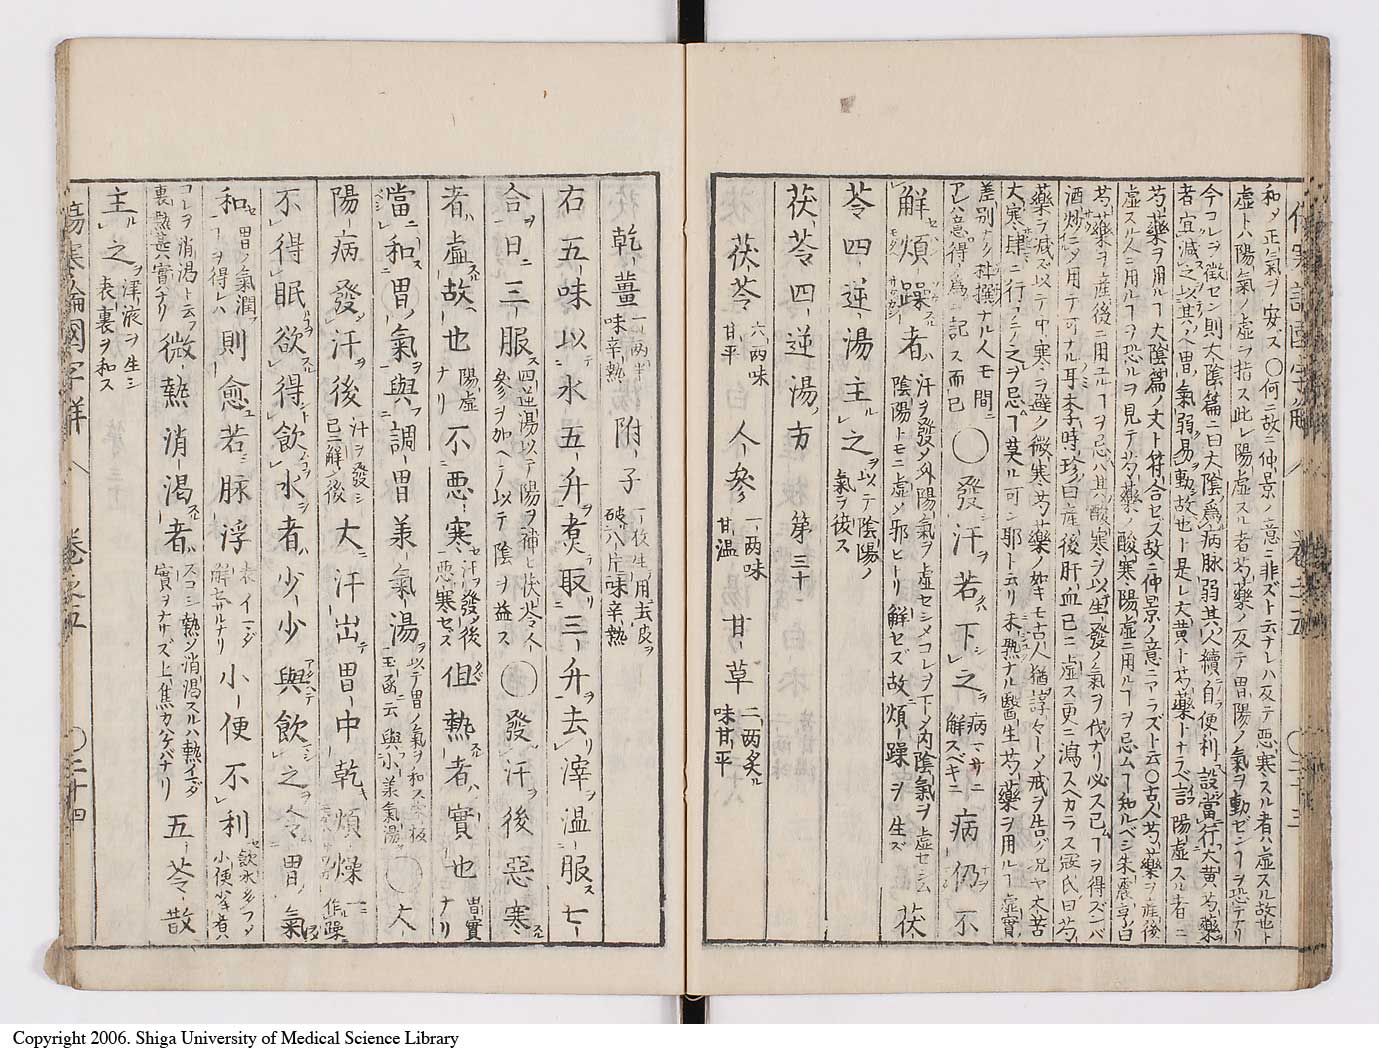 和〆正氣ヲ安ス○何ニ故ニ仲景ノ意ニ非ズト云ナレハ反テ惡寒スル者ハ虚スル故也ト
虚トハ陽氣ノ虚ヲ指ス此レ陽虚スル者芍藥ノ反テ胃陽ノ氣ヲ動ゼンヿヲ恐テナリ
今コレヲ徴セン則太陰篇ニ曰太陰爲病脉弱其人續自便利設當行大黄芍藥
者宜減之以其人胃氣弱易動故也ト是レ大黄ト芍藥トナラベ言陽虚スル者ニ
芍藥ヲ用ルヿ太陰篇ノ文ト符合セズ故ニ仲景ノ意ニアラズト云○古人芍藥ヲ産後
虚スル人ニ用ルヿヲ恐ルヲ見テ芍藥ノ酸寒陽虚ニ用ルヿヲ忌ムヿ知ルベシ朱震亨曰
芍藥ヲ産後ニ用ユルヿヲ忌ハ其酸寒ヲ以生發ノ氣ヲ伐ナリ必ス已ムヿヲ得ズンバ
酒炒ニ〆用テ可ナル耳李時珍曰産後肝血已ニ虚ス更ニ瀉スヘカラス寇氏曰芍
藥ヲ減ズ以テ中寒ヲ避ク微寒芍藥ノ如キモ古人猶諄々ト〆戒ヲ告グ況ヤ大苦
大寒肆ニ行フ之ヲ忌ムヿ莫ル可ン耶ト云リ未熟ナル醫生芍藥ヲ用ルヿ虚實
差別ナク杜撰ナル人モ間ニアレハ意得ノ爲ニ記ス而已 ○發汗若下之 病マサニ解スベキニ 病仍不
解煩躁者 汗ヲ發〆外陽氣ヲ虚セシメコレヲ下〆内陰氣ヲ虚セシム陰陽トモニ虚〆邪ヒトリ解セズ故ニ煩躁ヲ生ズ 茯
苓四逆湯主之 以テ陰陽ノ氣ヲ復ス
茯苓四逆湯方 第三十一
茯苓 六兩味甘平 人參 一兩味甘温 甘草 二兩炙味甘平
傷寒論國字解 卷之五 ○二十三
乾薑 一兩半味辛熱 附子 一枚生用去皮破八片味辛熱
右五味以水五升煑取三升去滓温服七
合日三服 四逆湯以テ陽ヲ補ヒ茯苓人參ヲ加ヘテ以テ陰ヲ益ス ○發汗後惡寒
者虚故也 陽虚ナリ 不惡寒 汗ヲ發〆後惡寒セズ 但熱者實也 胃實ナリ
當和胃氣與調胃美氣湯 以テ胃ノ氣ヲ和ス 玉函ニ云與小美氣湯 ○太
陽病發汗後 汗ヲ發シ已ニ解〆後 大汗出胃中乾煩燥 一ニ作躁
不得眠欲得飲水者少少與飲之令胃氣
和 胃ノ氣潤フヿヲ得レハ 則愈若脉浮 表イマダ解セザルナリ 小便不利 飲水多フ〆小便少キ者
コレヲ消渇ト云フ裏熱甚實ナリ 微熱消渇者 スコシ熱〆消渇スルハ熱イマダ實ヲナサズ上焦カハケバナリ 五苓散
主之 津液ヲ生シ表裏ヲ和ス
傷寒論國字詳 卷之五 ○二十四
Copyright 2006. Shiga University of Medical Science Library